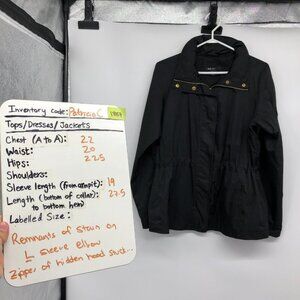 Inventory code: Patricia C
Tops/Dresses/Jackets
Chest (A to A): 22
Waist: 20
Hips: 22.5
Shoulders:
Sleeve length (from armpit): 19
Length (bottom of collar): 27.5
to bottom hem)
Labelled Size:
Remnants of stain on
L sleeve elbow
Zipper of hidden hood stuck...